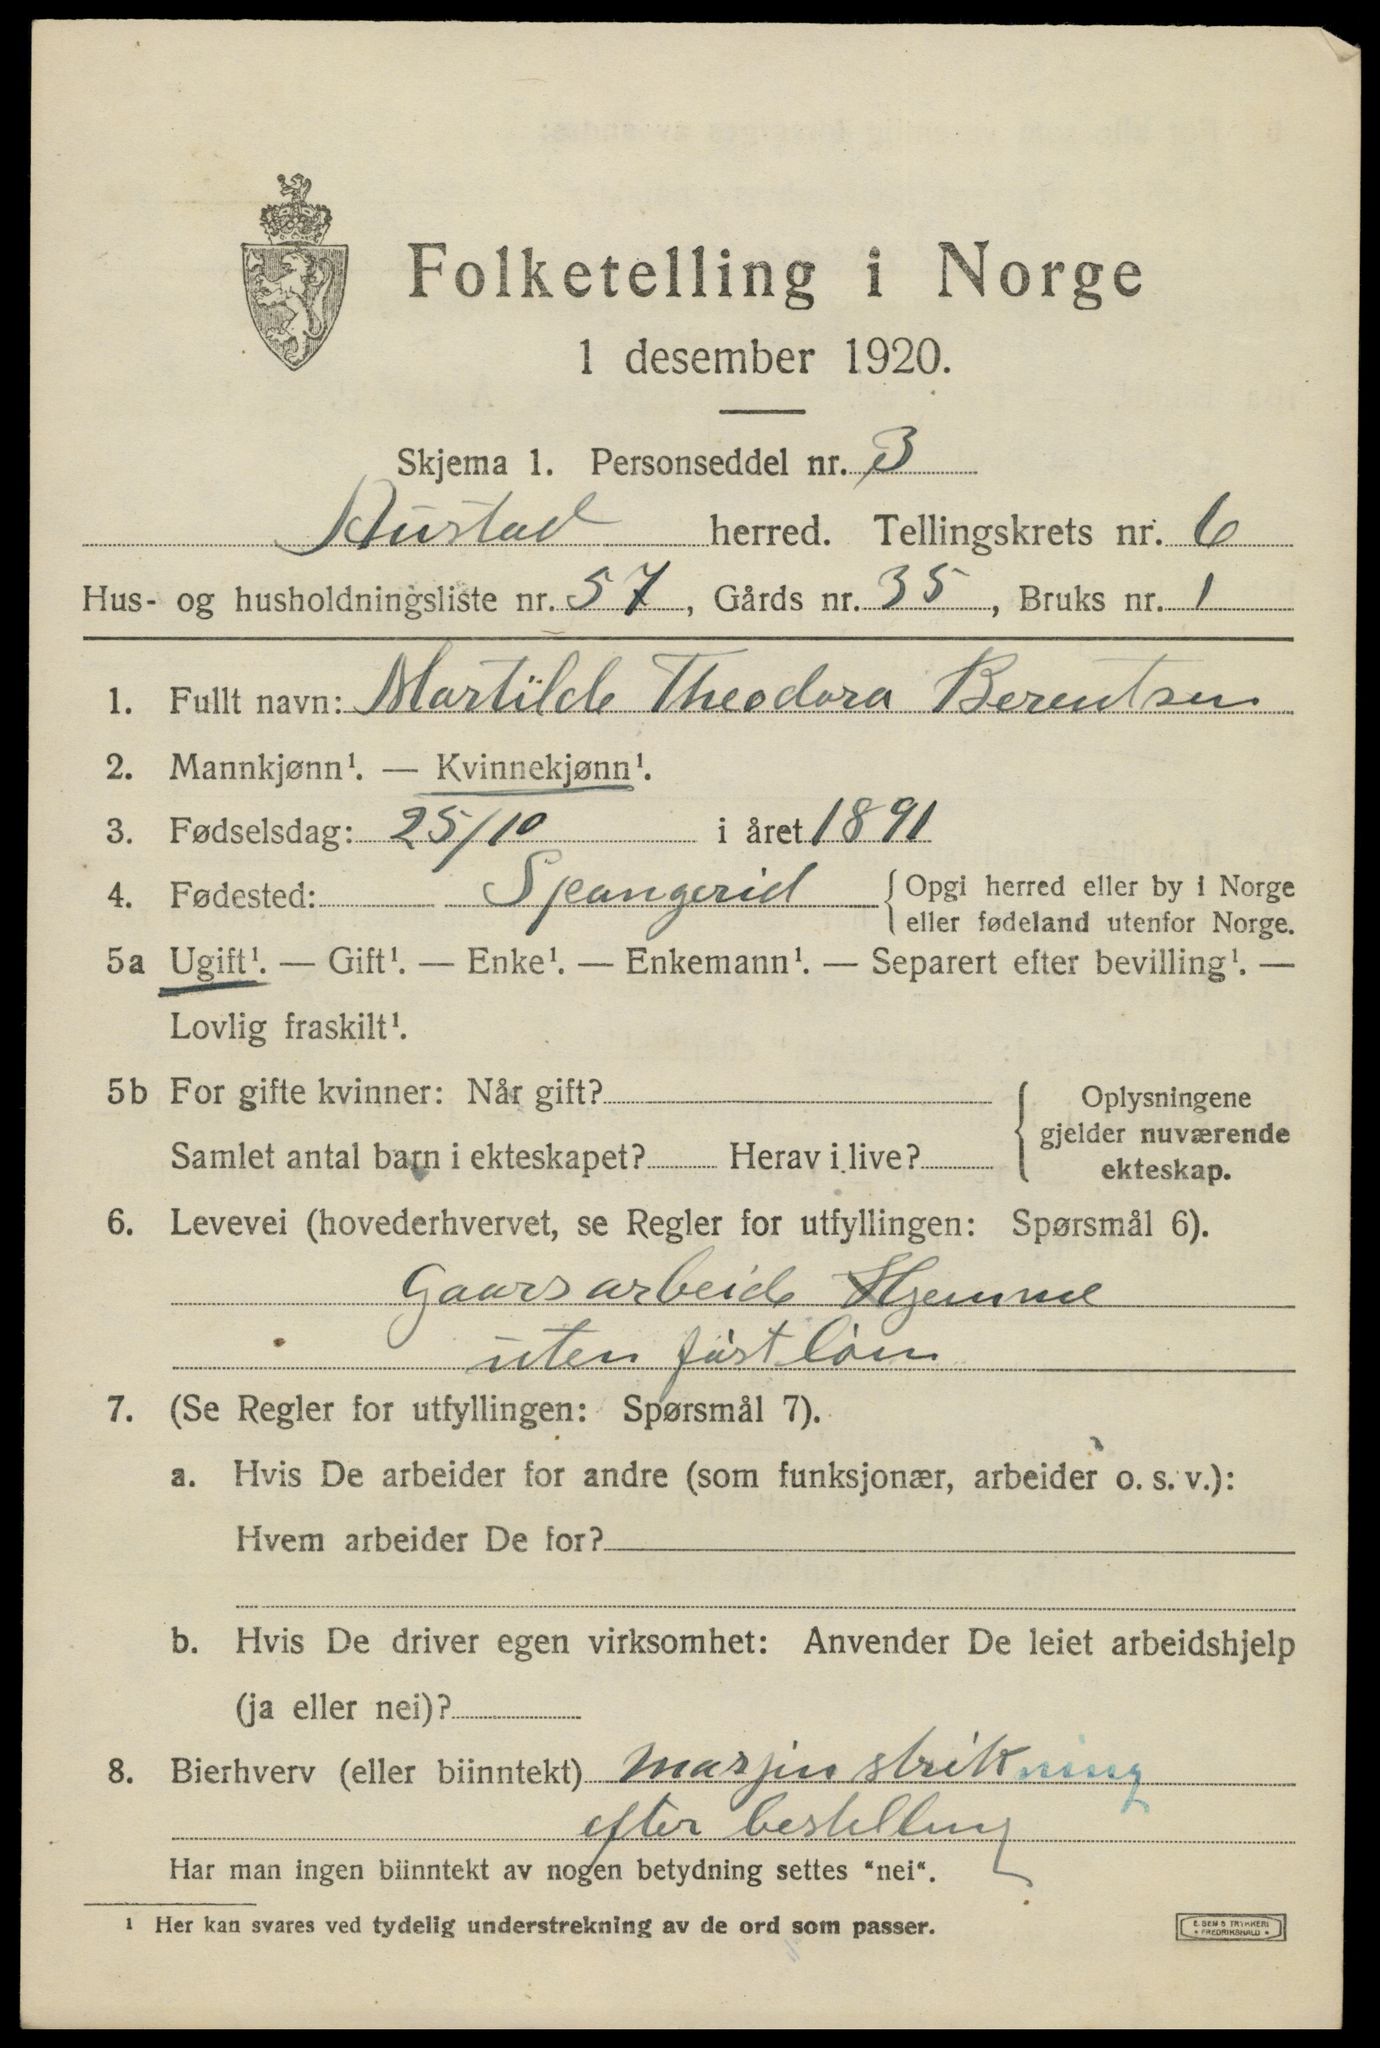 Folketelling i Norge
1 desember 1920.
Skjema 1. Personseddel nr. 3
Austad herred. Tellingskrets nr. 6
Hus- og husholdningsliste nr. 57, Gårds nr. 35, Bruks nr. 1
1. Fullt navn: Martilde Theodora Berentsen
2. Mannkjønn¹. — Kvinnekjønn¹.
3. Fødselsdag: 25/10 i året 1891
4. Fødested: Speangerid { Opgi herred eller by i Norge
eller fødeland utenfor Norge.
5a Ugift¹. — Gift¹. — Enke¹. — Enkemann¹. — Separert efter bevilling¹. —
Lovlig fraskilt¹.
5b For gifte kvinner: Når gift?
Samlet antal barn i ekteskapet? Herav i live?
Oplysningene
gjelder nuværende
ekteskap.
6. Levevei (hovederhvervet, se Regler for utfyllingen: Spørsmål 6).
Gaarsarbeide Hjemme
uten fast løn
7. (Se Regler for utfyllingen: Spørsmål 7).
a. Hvis De arbeider for andre (som funksjonær, arbeider o. s. v.):
Hvem arbeider De for?
b. Hvis De driver egen virksomhet: Anvender De leiet arbeidshjelp
(ja eller nei)?
8. Bierhverv (eller biinntekt) masjin strikning
efter bestilling
Har man ingen biinntekt av nogen betydning settes "nei".
¹ Her kan svares ved tydelig understrekning av de ord som passer.
E. SEM S TRYKKERI
FREDRIKSHALD